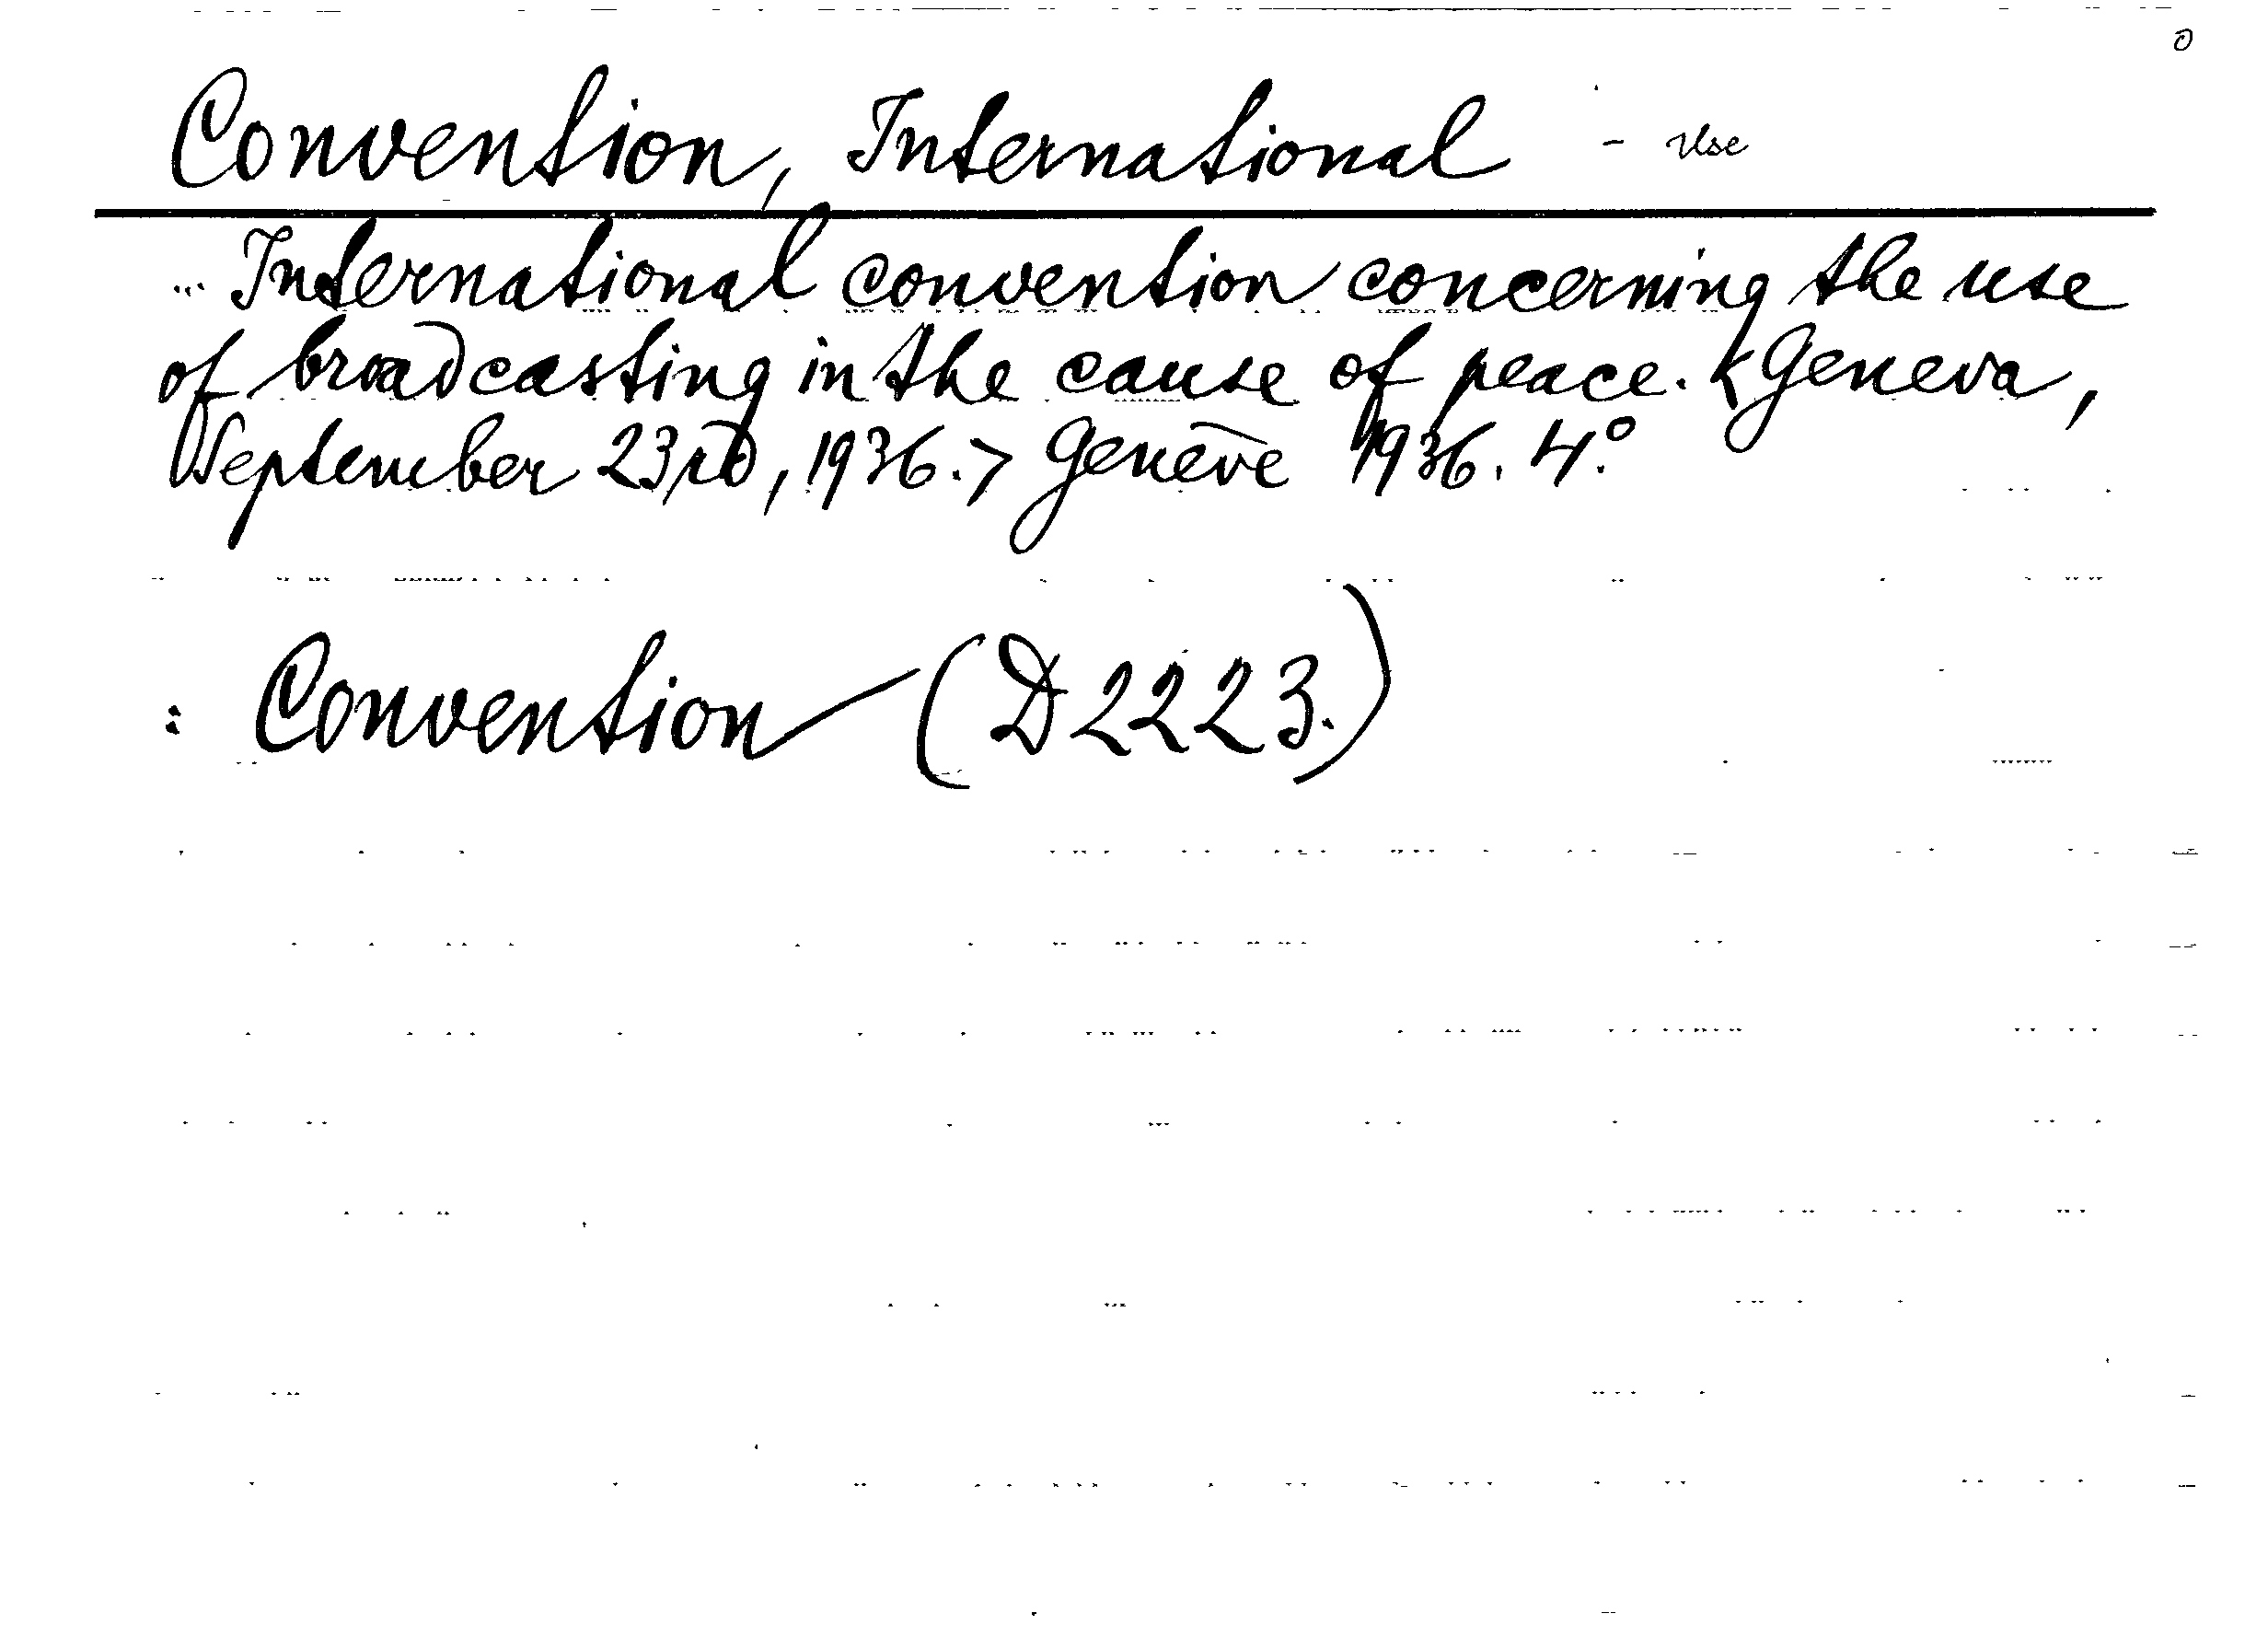 Convention, International - Use
... International convention concerning the use
of broadcasting in the cause of peace. <Geneva,
September 23rd, 1936.> Genève 1936. 4°.
: Convention (D 2223.)